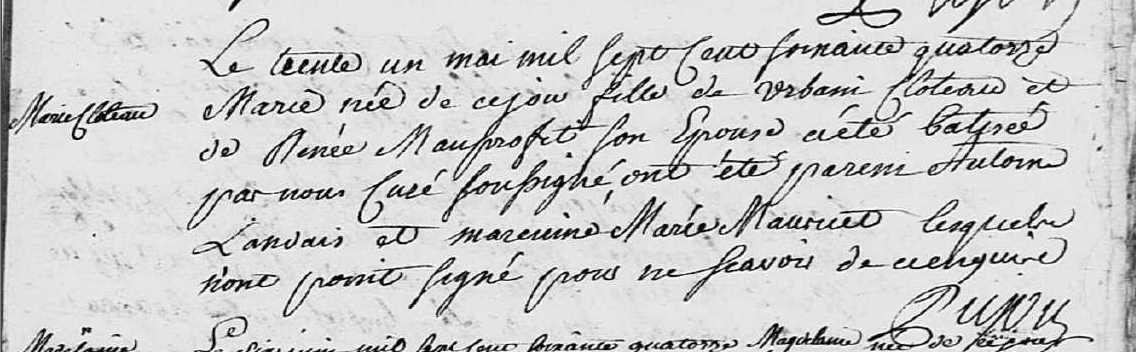 Le trente un mai mil sept cent soixante quatorze
Marie Cloteau
Marie née de ce jour fille de Urbain Cloteau et
de Renée Mauprofit son Epouse a été batisée
par nous Curé soussigné, ont été parein Antoine
Landais et mareinne Marie Mauricet lesquels
n'ont point signé pour ne scavoir de ce enquire
Madelaine
Le six juin mil sept cent soixante quatorze Magdelaine née de ce jour